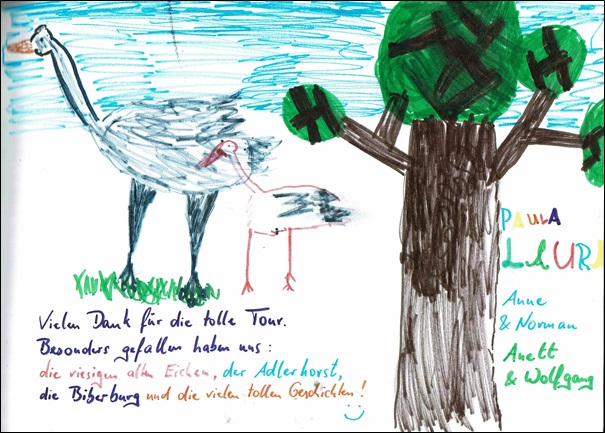 Vielen Dank für die tolle Tour.
Besonders gefallen haben uns:
die riesigen alten Eichen, der Adlerhorst,
die Biberburg und die vielen tollen Geschichten!
PAULA
LAURA
Anne
& Norman
Anett
& Wolfgang